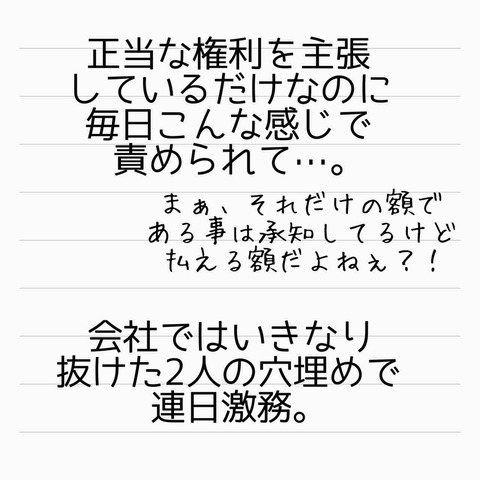 正当な権利を主張
しているだけなのに
毎日こんな感じで
責められて…。
まぁ、それだけの額で
ある事は承知してるけど
払える額だよねぇ？！
会社ではいきなり
抜けた2人の穴埋めで
連日激務。